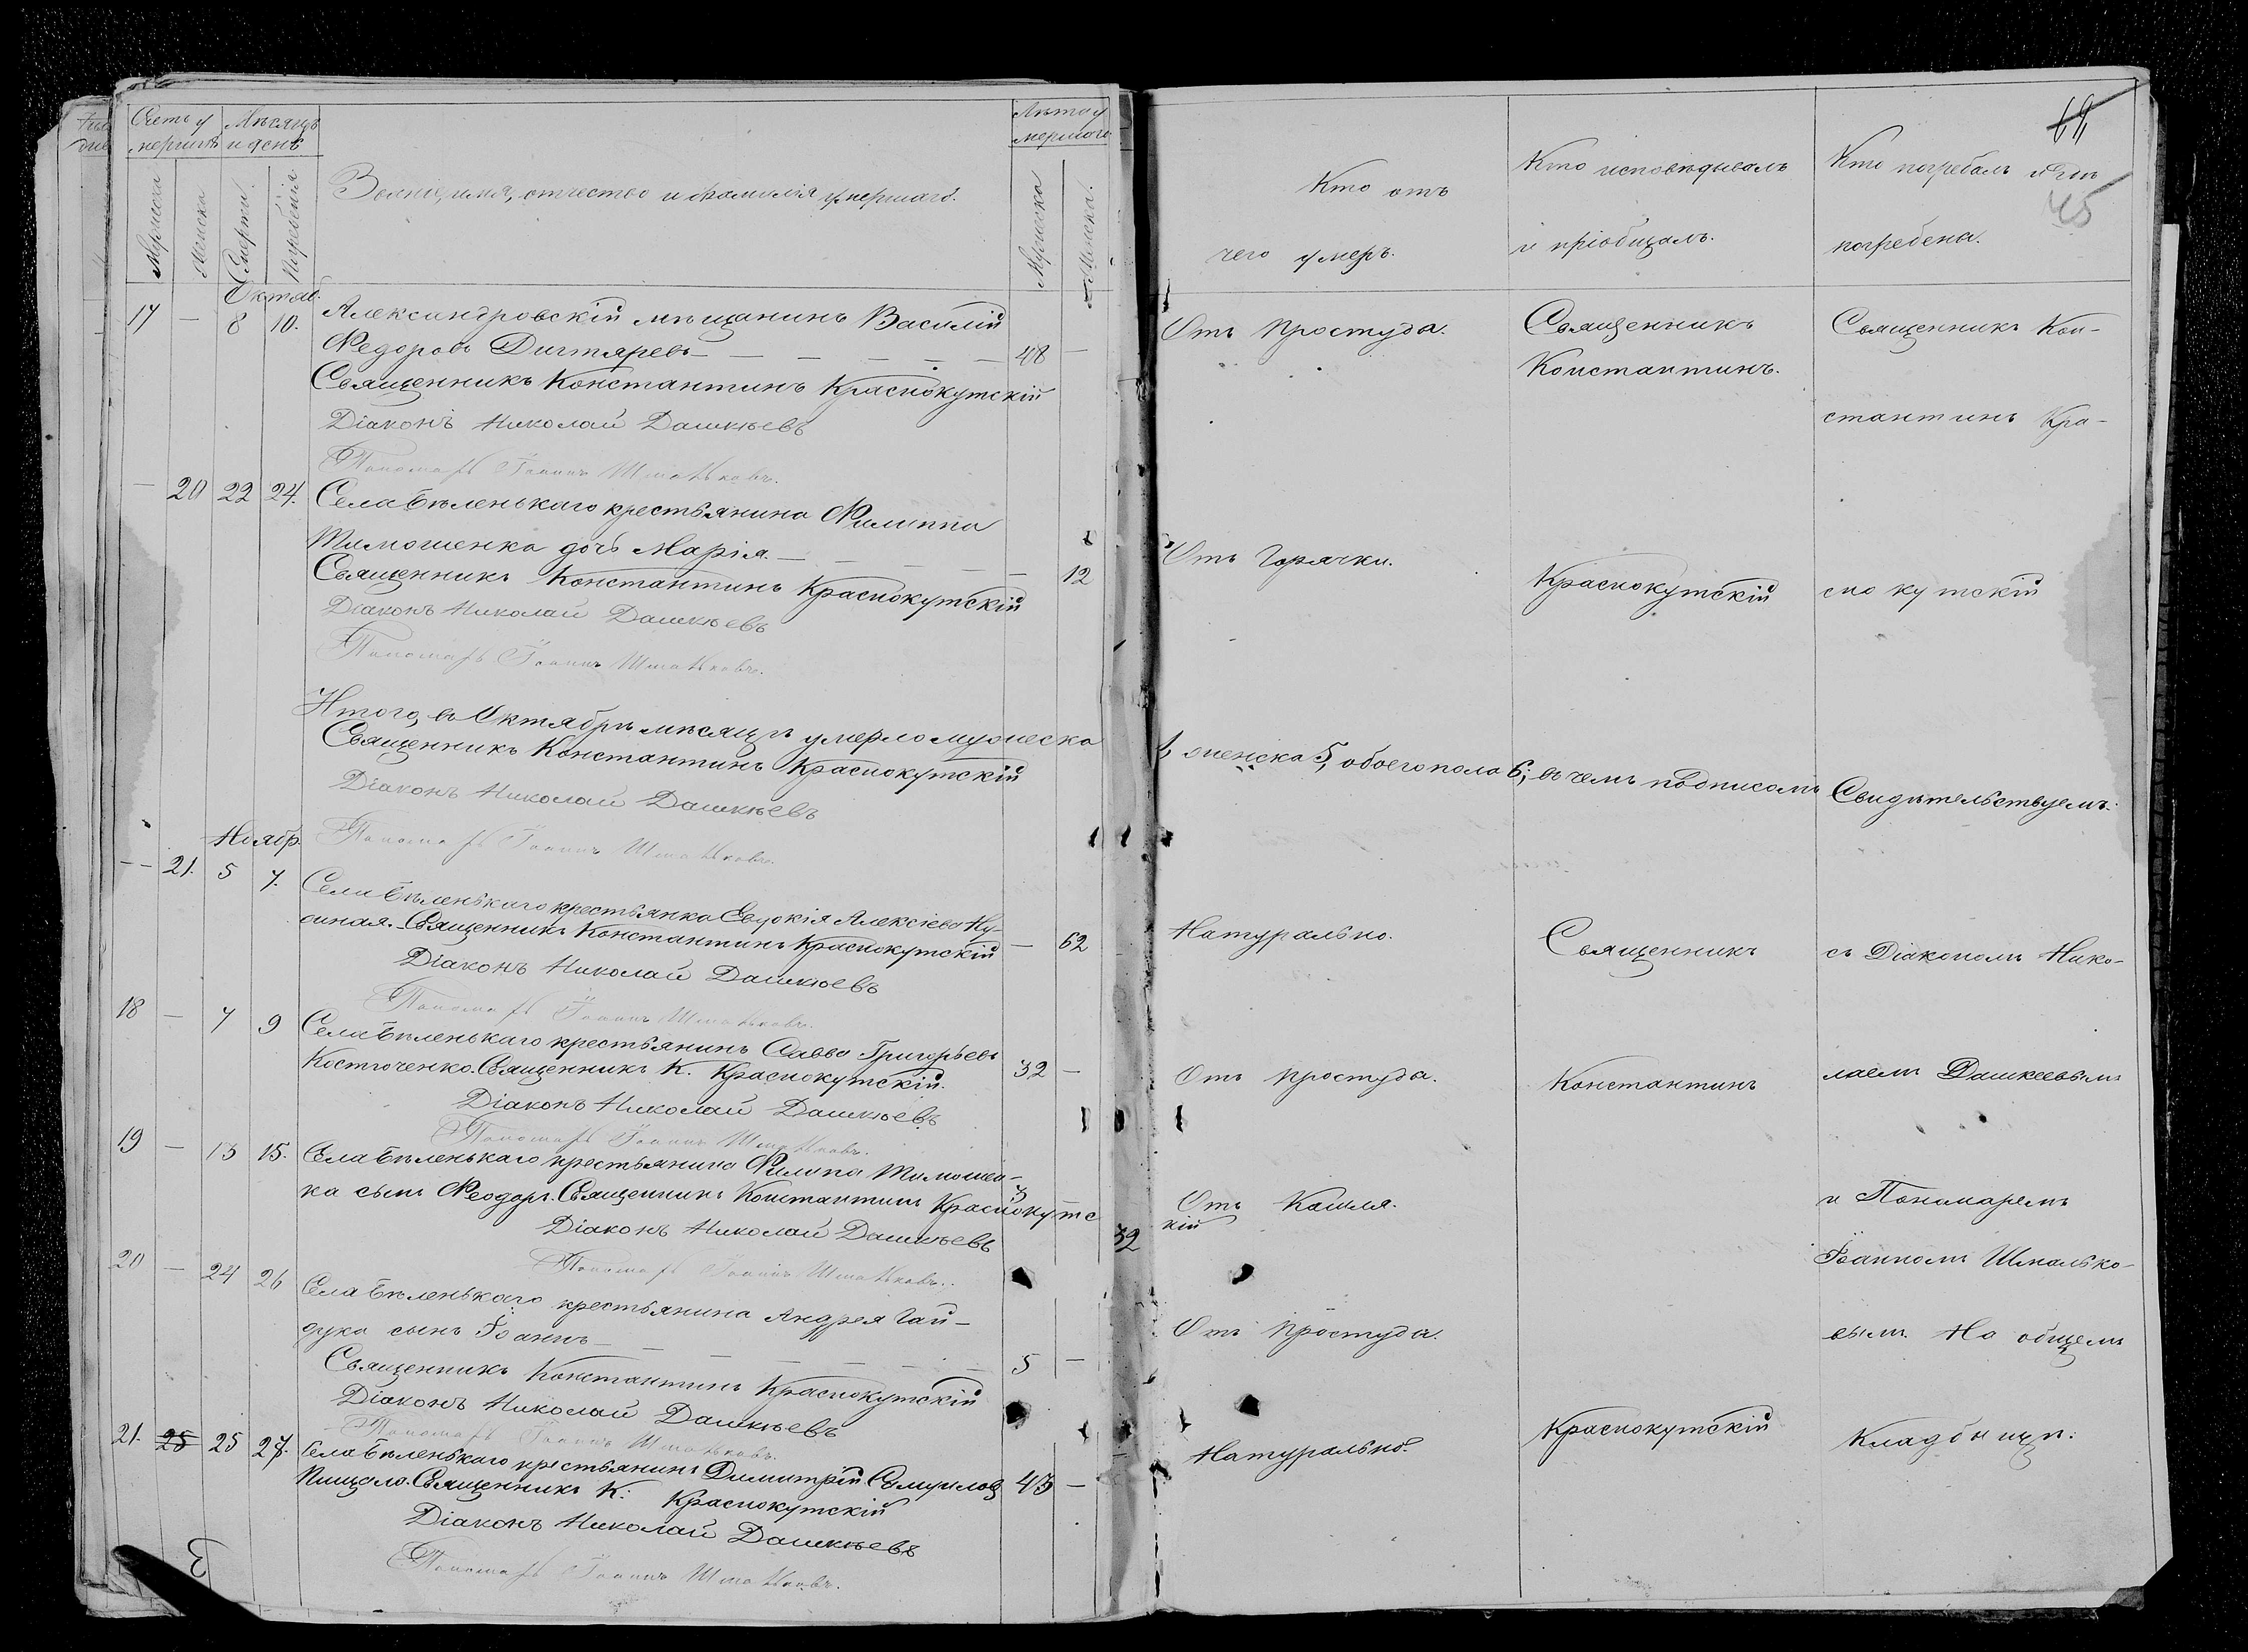 Счетъ у
мершихъ
Мѣсяцъ
и день
Мужеска
Женска
Смерти.
Погребенія
Званіе, имя, отчество и фамилія умершаго.
Лѣта у
мершаго
Мужеска
Женска.
Октяб.
17 — 8 10. Александровскій мѣщанинъ Василій
Федоровъ Дигтяревъ — — — — — 48 —
Священникъ Константинъ Краснокутскій
Діаконъ Николай Дашкѣевъ
Пономарь Іоаннъ Шмальковъ.
— 20 22 24. Села Бѣленькаго крестьянина Филиппа
Тимошенка дочь Марія. — — — 12
Священникъ Константинъ Краснокутскій
Діаконъ Николай Дашкѣевъ
Пономарь Іоаннъ Шмальковъ.
Итого, въ Октябрѣ мѣсяцѣ умерло мужеска
Священникъ Константинъ Краснокутскій
Діаконъ Николай Дашкѣевъ
Пономарь Іоаннъ Шмальковъ.
Ноябр.
— 21. 5 7. Села Бѣленькаго крестьянка Евдокія Алексіева Ну-
жная. Священникъ Константинъ Краснокутскій — 62
Діаконъ Николай Дашкѣевъ
Пономарь Іоаннъ Шмальковъ.
18 — 7 9 Села Бѣленькаго крестьянинъ Савва Григорьевъ
Костюченко. Священникъ К. Краснокутскій. 32 —
Діаконъ Николай Дашкѣевъ
Пономарь Іоаннъ Шмальковъ.
19 — 13 15. Села Бѣленькаго крестьянина Филипа Тимошен-
ка сынъ Феодоръ. Священникъ Константинъ Краснокутс
Діаконъ Николай Дашкѣевъ
Пономарь Іоаннъ Шмальковъ.
20 — 24 26 Села Бѣленькаго крестьянина Андрея Гай-
дука сынъ Іоаннъ — — — — — 5 —
Священникъ Константинъ Краснокутскій
Діаконъ Николай Дашкѣевъ
Пономарь Іоаннъ Шмальковъ.
21. 25 25 27. Села Бѣленькаго крестьянинъ Димитрій Самуиловъ
Пищало. Священникъ К: Краснокутскій 43 —
Діаконъ Николай Дашкѣевъ
Пономарь Іоаннъ Шмальковъ.
32
45
Кто отъ
чего умеръ.
Кто исповѣдывалъ
и пріобщалъ.
Кто погребалъ и гдѣ
погребена.
Отъ простуда.
Священникъ
Константинъ.
Священникъ Кон-
стантинъ Кра-
Отъ Горячки.
Краснокутскій
сно кутскій
1, женска 5, обоего пола 6; въ чемъ подписомъ Свидѣтельствуемъ:
Натурально.
Священникъ
съ Діакономъ Нико-
Отъ простуда.
Константинъ
лаемъ Дашкеевымъ
Отъ Кашля.
кій
и Пономаремъ
Іоанномъ Шмалько-
Отъ простуда.
вымъ. На общемъ
Натурально.
Краснокутскій
Кладбищѣ.